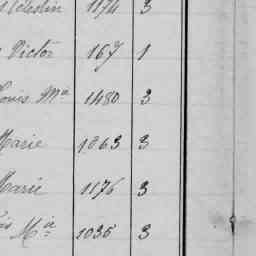 Célestin 1174 3
Victor 167 1
Louis Ma 1480 3
Marie 1063 3
Marie 1176 3
Mie 1035 3